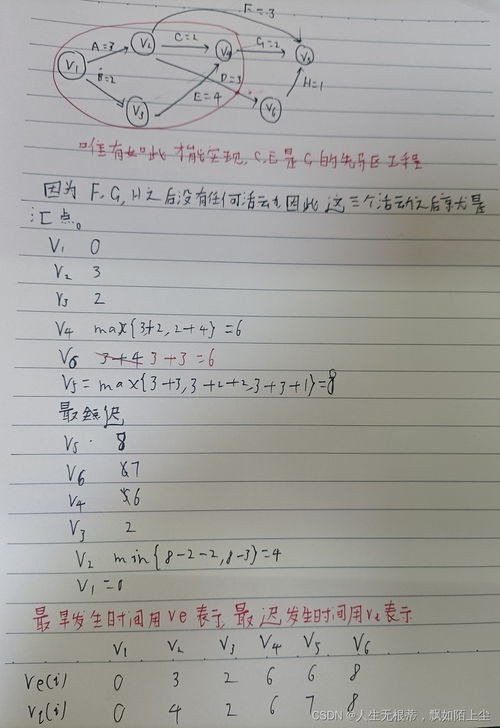 F=3
A=3 V2 C=2 V4 G=2 V5
V1 B=2 D=3 H=1
V3 E=4 V6
唯有如此才能实现, C,E是G的先导工程
因为F,G,H之后没有任何活动,因此这三个活动之后就是
汇点。
V1 0
V2 3
V3 2
V4 max{3+2,2+4}=6
V6 3+4 3+3=6
V5=max{3+3,3+2+2,3+3+1}=8
最迟
V5. 8
V6 7
V4 6
V3 2
V2 min{8-2-2,8-3}=4
V1=0
最早发生时间用ve表示,最迟发生时间用vl表示
V1 V2 V3 V4 V5 V6
ve(i) 0 3 2 6 6 8
vl(i) 0 4 2 6 7 8
CSDN @人生无根蒂,飘如陌上尘